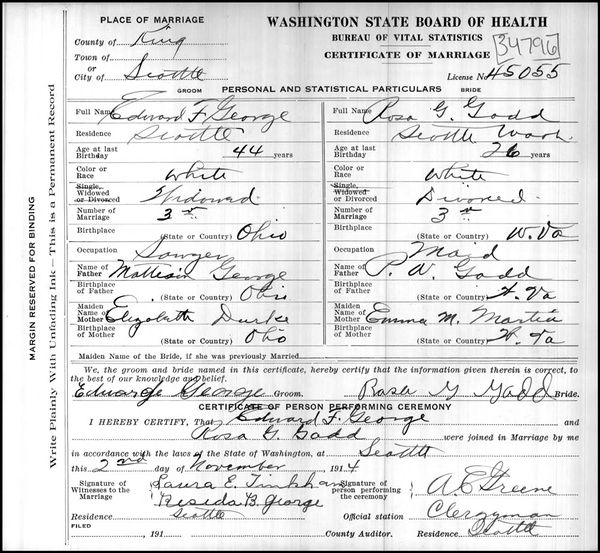 PLACE OF MARRIAGE
County of King
Town of
or
City of Seattle
WASHINGTON STATE BOARD OF HEALTH
BUREAU OF VITAL STATISTICS
CERTIFICATE OF MARRIAGE
34796
License No 45055
GROOM PERSONAL AND STATISTICAL PARTICULARS BRIDE
Full Name Edward F. George Full Name Rosa G. Gadd
Residence Seattle Residence Seattle Wash.
Age at last Birthday 44 years Age at last Birthday 26 years
Color or Race White Color or Race White
Single, Widowed or Divorced Widowed Single, Widowed or Divorced Divorced
Number of Marriage 3rd Number of Marriage 3rd
Birthplace (State or Country) Ohio Birthplace (State or Country) W. Va
Occupation Sawyer Occupation Maid
Name of Father George Name of Father P. W. Gadd
Birthplace of Father (State or Country) Ohio Birthplace of Father (State or Country) W. Va
Maiden Name of Mother Elizabeth Maiden Name of Mother Emma M. Martin
Birthplace of Mother Ohio Birthplace of Mother (State or Country) W. Va
Maiden Name of the Bride, if she was previously Married
We, the groom and bride named in this certificate, hereby certify that the information given therein is correct, to
the best of our knowledge and belief.
Edward George Groom. Rosa G Gadd Bride.
CERTIFICATE OF PERSON PERFORMING CEREMONY
I HEREBY CERTIFY, That Edward F. George and
Rosa G. Gadd were joined in Marriage by me
in accordance with the laws of the State of Washington, at Seattle
this 2nd day of November 1914
Signature of Witnesses to the Marriage Laura E. Tinkham
B. George
Signature of person performing the ceremony A. C. Greene
Official station Clergyman
Residence Seattle Residence Seattle
FILED , 191 County Auditor.
MARGIN RESERVED FOR BINDING
Write Plainly With Unfading Ink—This is a Permanent Record